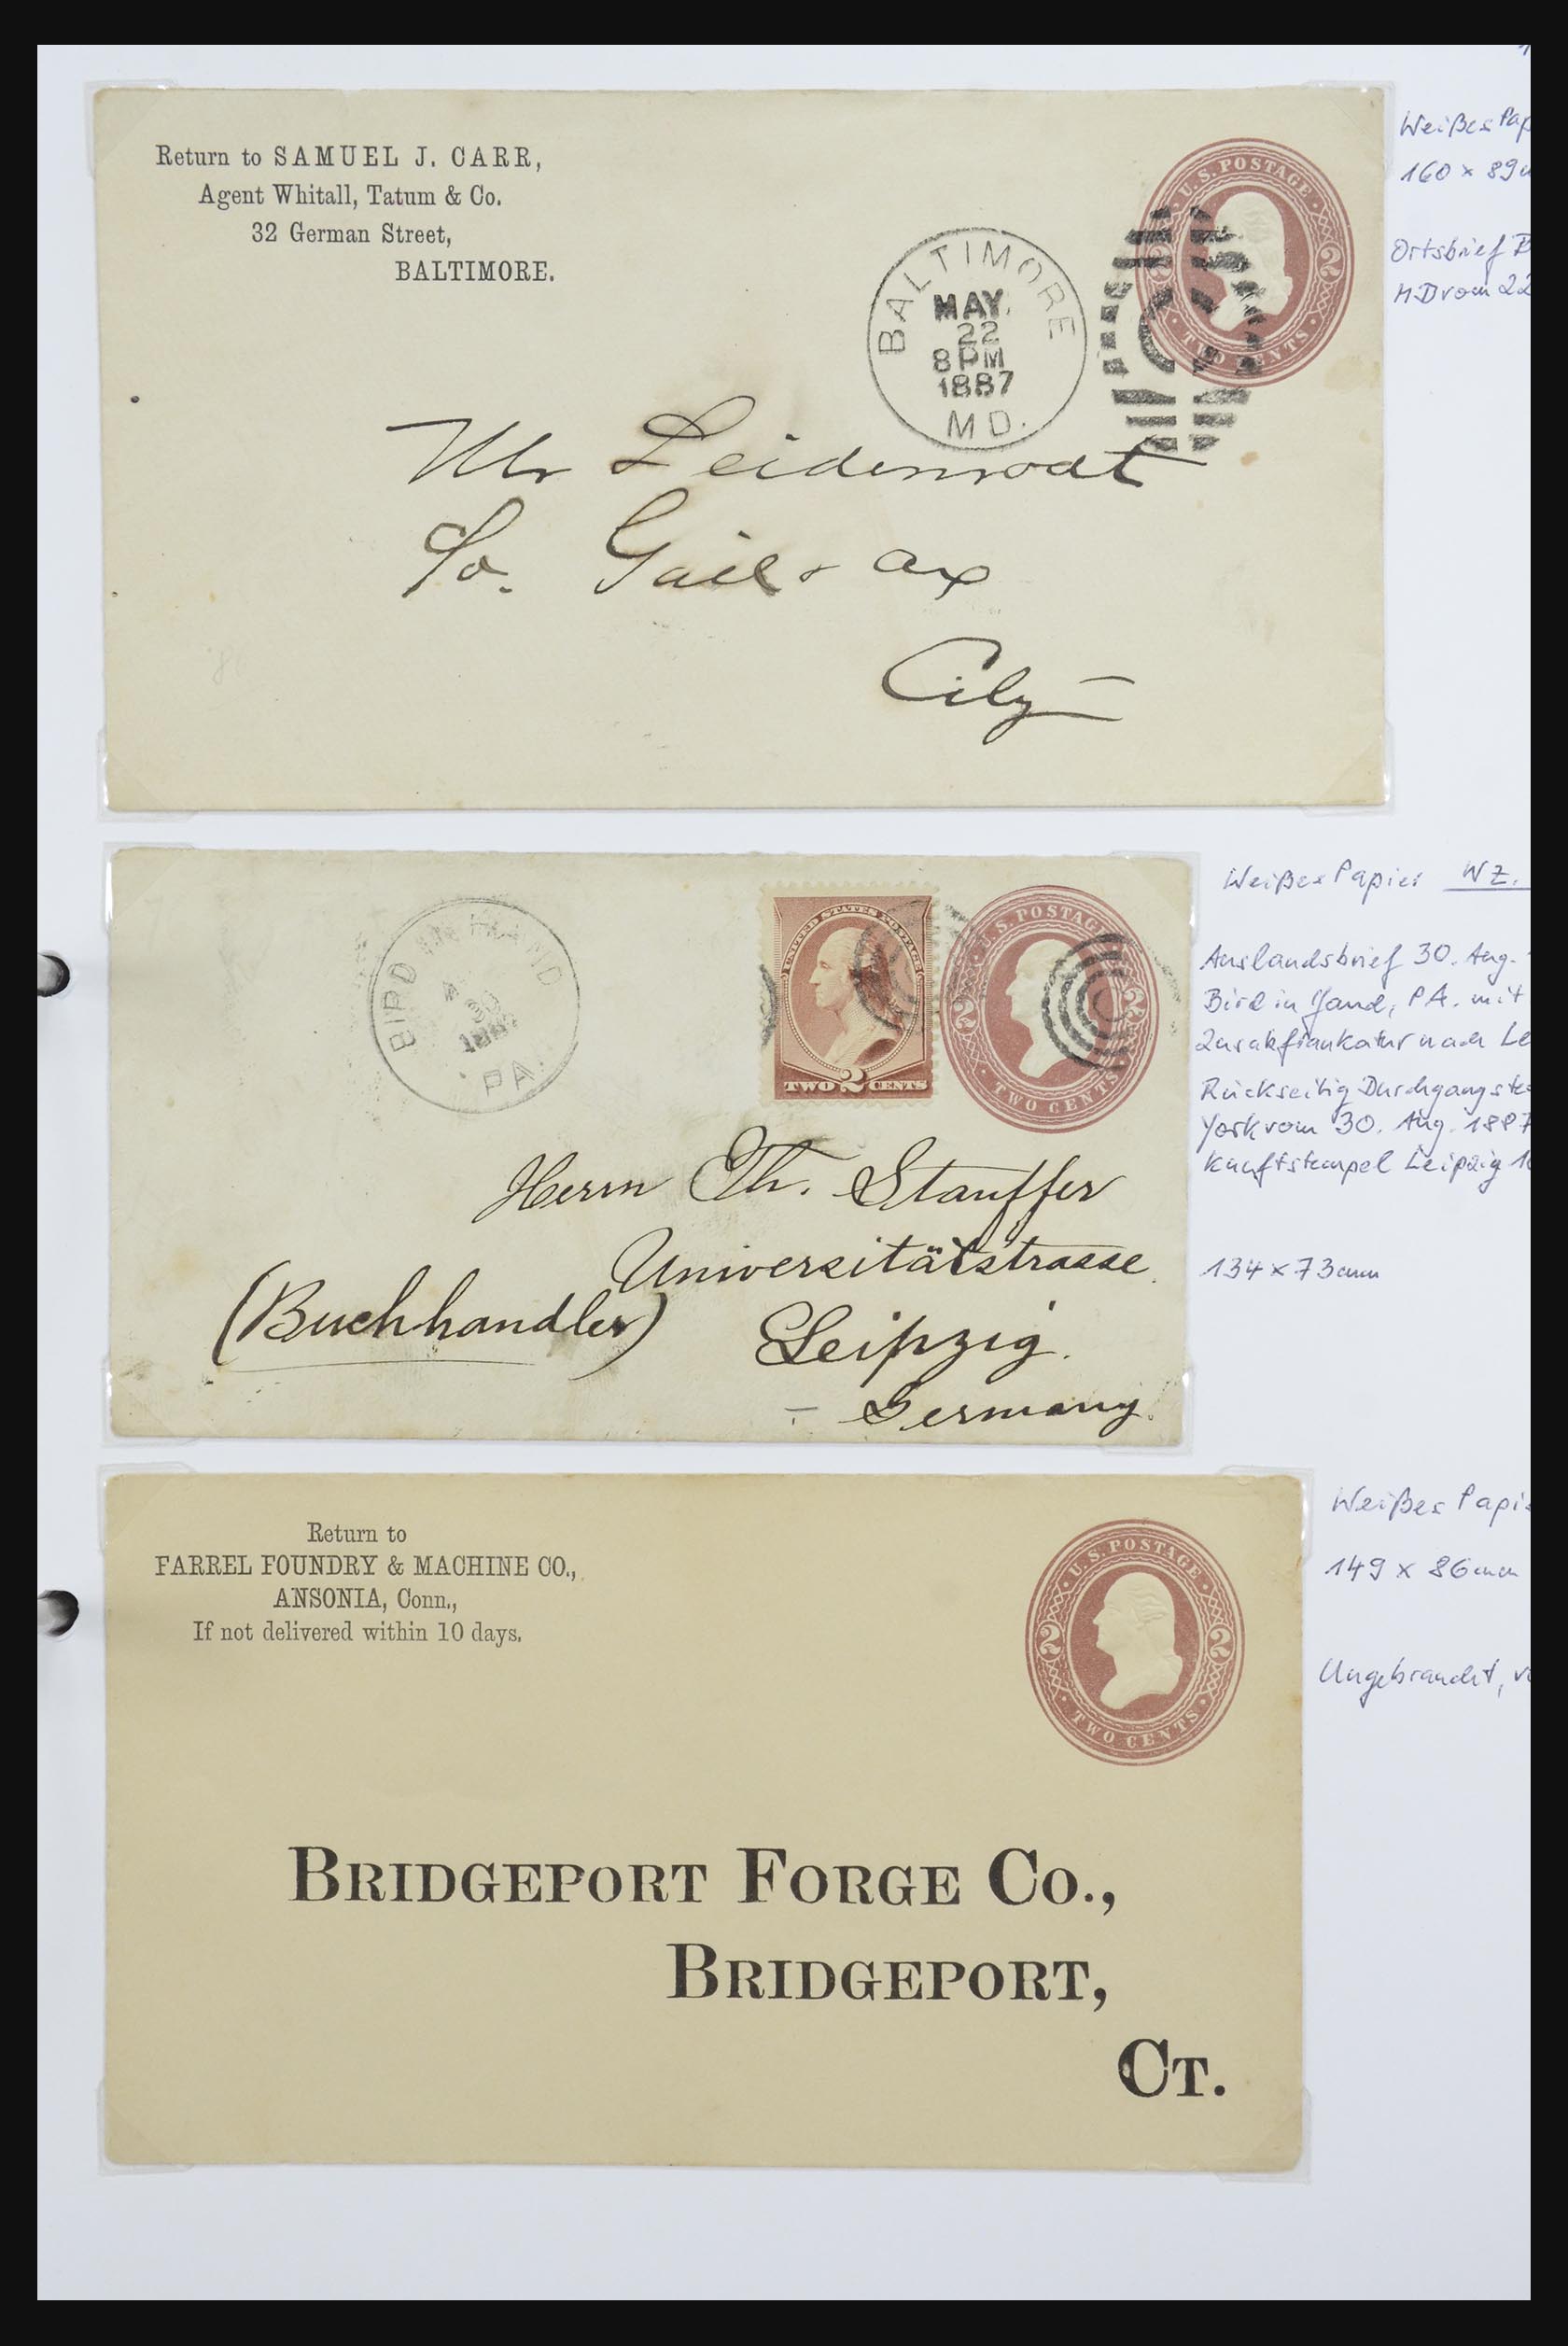 Return to SAMUEL J. CARR,
Agent Whitall, Tatum & Co.
32 German Street,
BALTIMORE.
BALTIMORE
MAY.
22
8 PM
1887
MD.
U.S. POSTAGE
2
TWO CENTS
Mr Leidenroat
c/o. Gail & Ax
City
Weißes Pap
160 x 89
Ortsbrief
MD vom 22
BIRD IN HAND
30
PA.
UNITED STATES POSTAGE
TWO 2 CENTS
U.S. POSTAGE
2 2
TWO CENTS
Herrn Th. Stauffer
Universitätstrasse
(Buchhandler)
Leipzig.
Germany.
Weißes Papier WZ.
Auslandsbrief 30. Aug.
Bird in Hand, PA. mit
Zusatzfrankatur nach Le
Rückseitig Durchgangste
York vom 30. Aug. 1887
kunftstempel Leipzig 1
134 x 73 mm
Return to
FARREL FOUNDRY & MACHINE CO.,
ANSONIA, Conn.,
If not delivered within 10 days.
U.S. POSTAGE
2 2
TWO CENTS
BRIDGEPORT FORGE CO.,
BRIDGEPORT,
CT.
Weißes Papie
149 x 86 mm
Ungebraucht, v